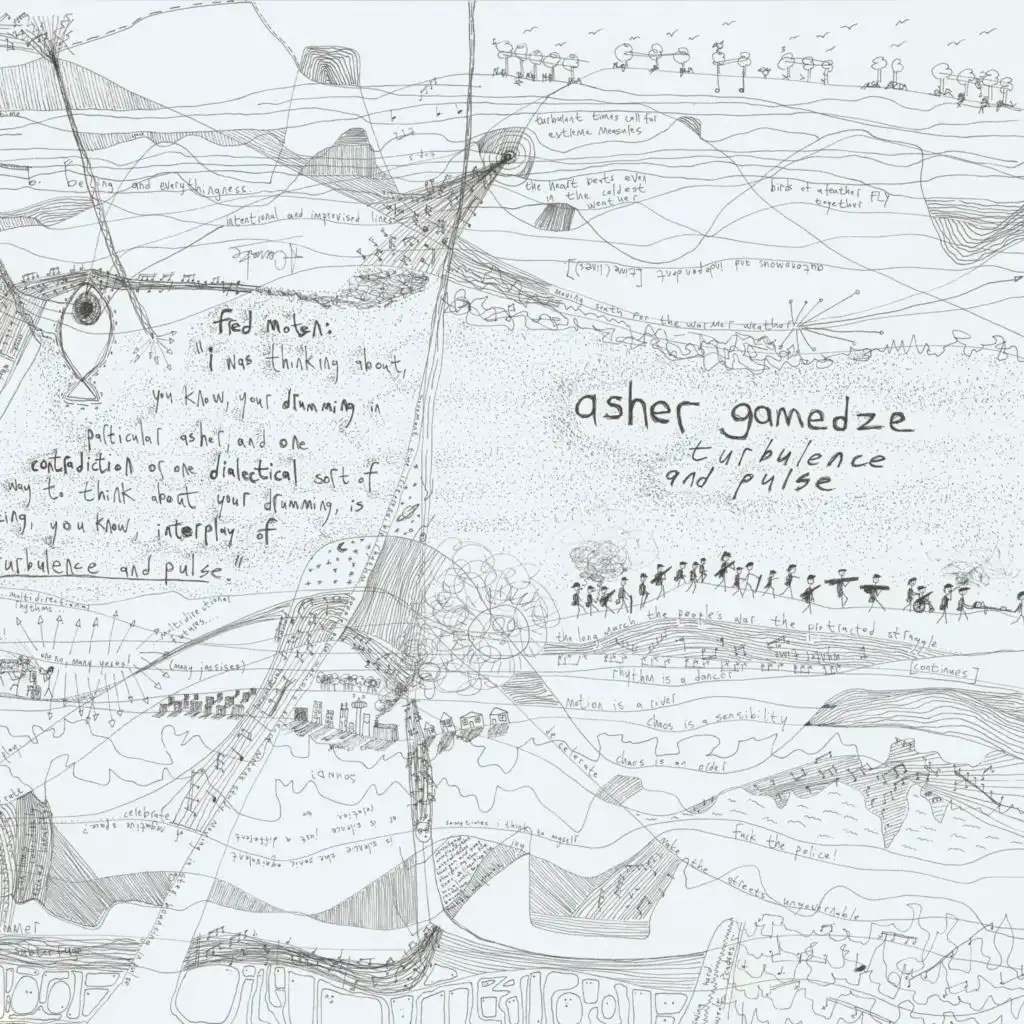 turbulent times call for
extreme measures
time
the heart beats even
in the coldest
weather
birds of a feather FLY
together
b. being and everythingness.
intentional and improvised lines
autonomous and independent [time(lines)]
moving south for the warmer weather
fred moten:
"i was thinking about,
you know, your drumming in
particular asher, and one
contradiction or one dialectical sort of
way to think about your drumming, is
you know, interplay of
turbulence and pulse."
asher gamedze
turbulence
and pulse
multidirectional
rhythms...
multidirectional
futures...
one no, many yeses!
(many jassises)
the long march the people's war the protracted struggle
[continues]
rhythm is a dancer
motion is a river
chaos is a sensibility
decelerate
chaos is an order
SOUND!
celebrate
negative space?
or is silence just a different
relation to
is silence the sonic equivalent
of
sometimes i think to myself
joy
fuck the police!
make the streets ungovernable
subterfuge